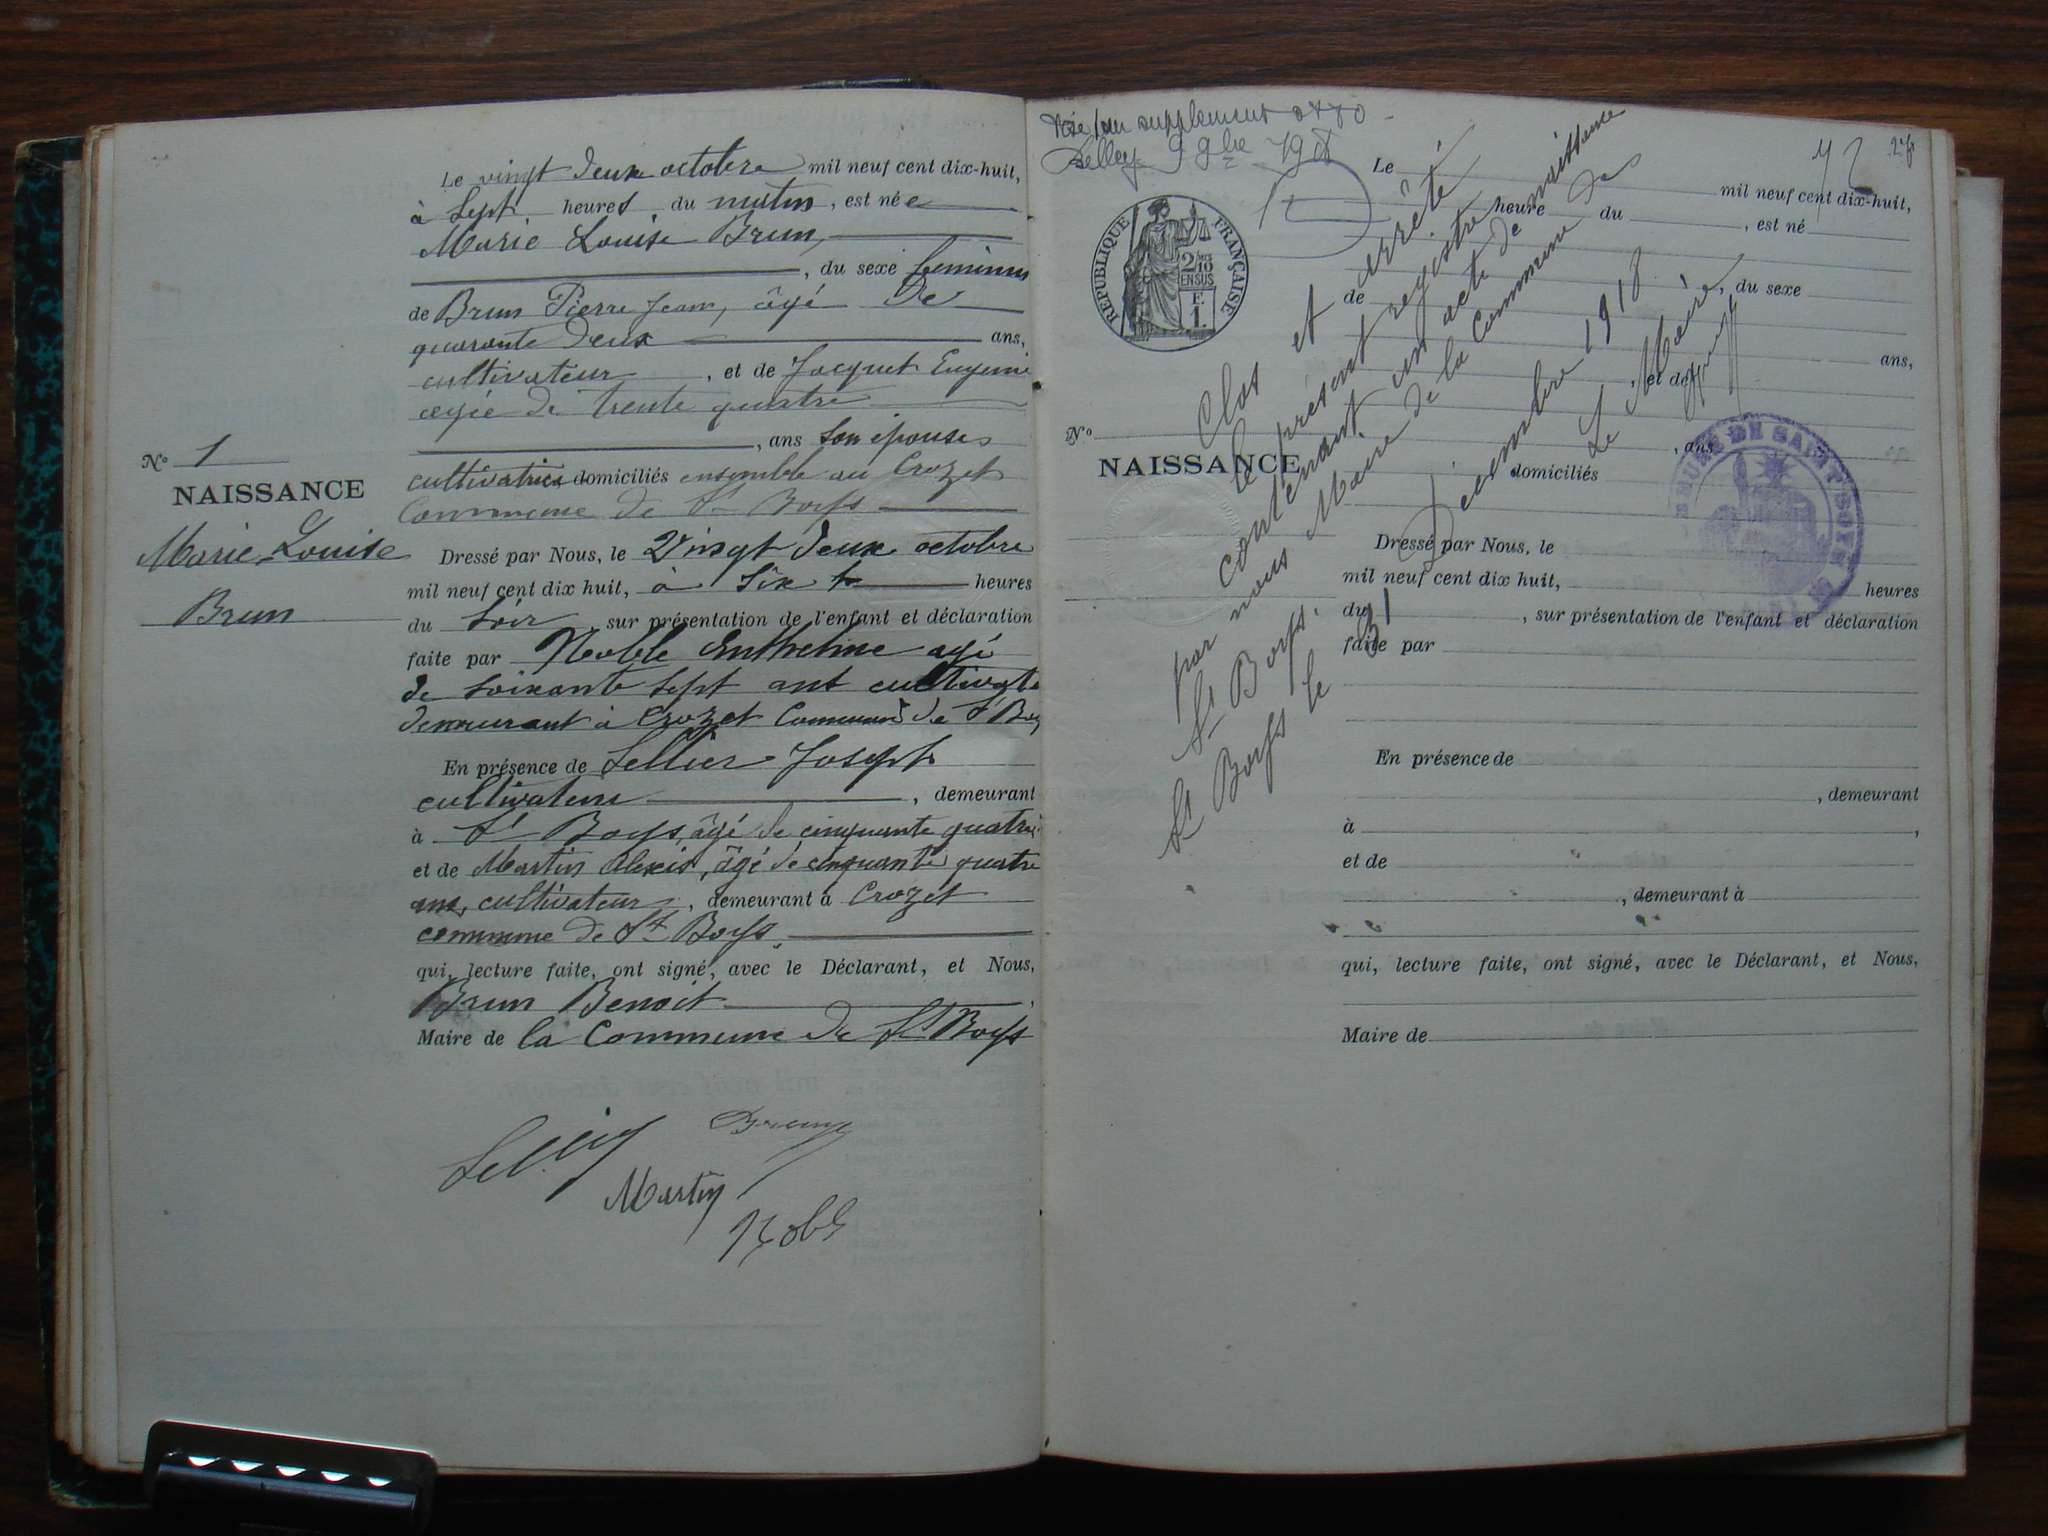 Le vingt deux octobre mil neuf cent dix-huit,
à Sept heures du matin, est née
Marie Louise Brun,
, du sexe feminin
de Brun Pierre Jean, âgé de
quarante deux ans,
cultivateur, et de Jacquet Eugenie
agée de trente quatre
, ans son épouse
cultivatrice domiciliés ensemble au Crozet
Commune de St Boys
No 1
NAISSANCE
Marie Louise
Brun
Dressé par Nous, le Vingt deux octobre
mil neuf cent dix huit, à Six heures
du Soir, sur présentation de l'enfant et déclaration
faite par Noble Anthelme agé
de soixante sept ans cultivate
demeurant à Crozet Commune de St Boys
En présence de Sellier Joseph
cultivateur, demeurant
à St Boys, âgé de cinquante quatre
et de Martin Alexis, âgé de cinquante quatre
ans, cultivateur, demeurant à Crozet
commune de St Boys,
qui, lecture faite, ont signé, avec le Déclarant, et Nous,
Brun Benoit
Maire de la Commune de St Boys
Martin
Noble
supplement
Belley 9bre 1918
27
RÉPUBLIQUE FRANÇAISE
2/10
EN SUS
F.
1.
Le
mil neuf cent dix-huit,
heure du
, est né
, du sexe
de
ans,
, et de
, ans
domiciliés
No
NAISSANCE
Clos et arrêté
le présent registre
contenant un acte de naissance
par nous Maire de la Commune de
St Boys.
St Boys le 31 Décembre 1918
Le Maire
DE SAINT BOYS
Dressé par Nous, le
mil neuf cent dix huit, heures
du, sur présentation de l'enfant et déclaration
faite par
En présence de
, demeurant
à ,
et de
, demeurant à
qui, lecture faite, ont signé, avec le Déclarant, et Nous,
Maire de